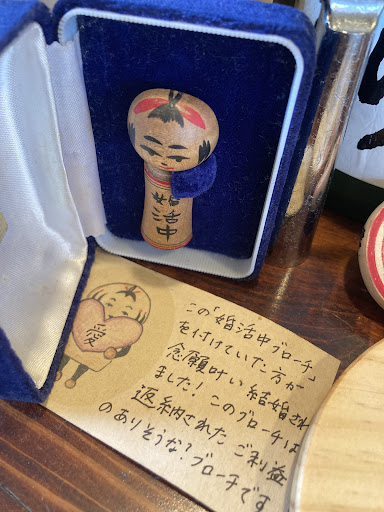 婚活中
愛
この「婚活中ブローチ」
を付けていた方が
念願叶い 結婚され
ました！このブローチは
返納された ご利益
のありそうな？ブローチです